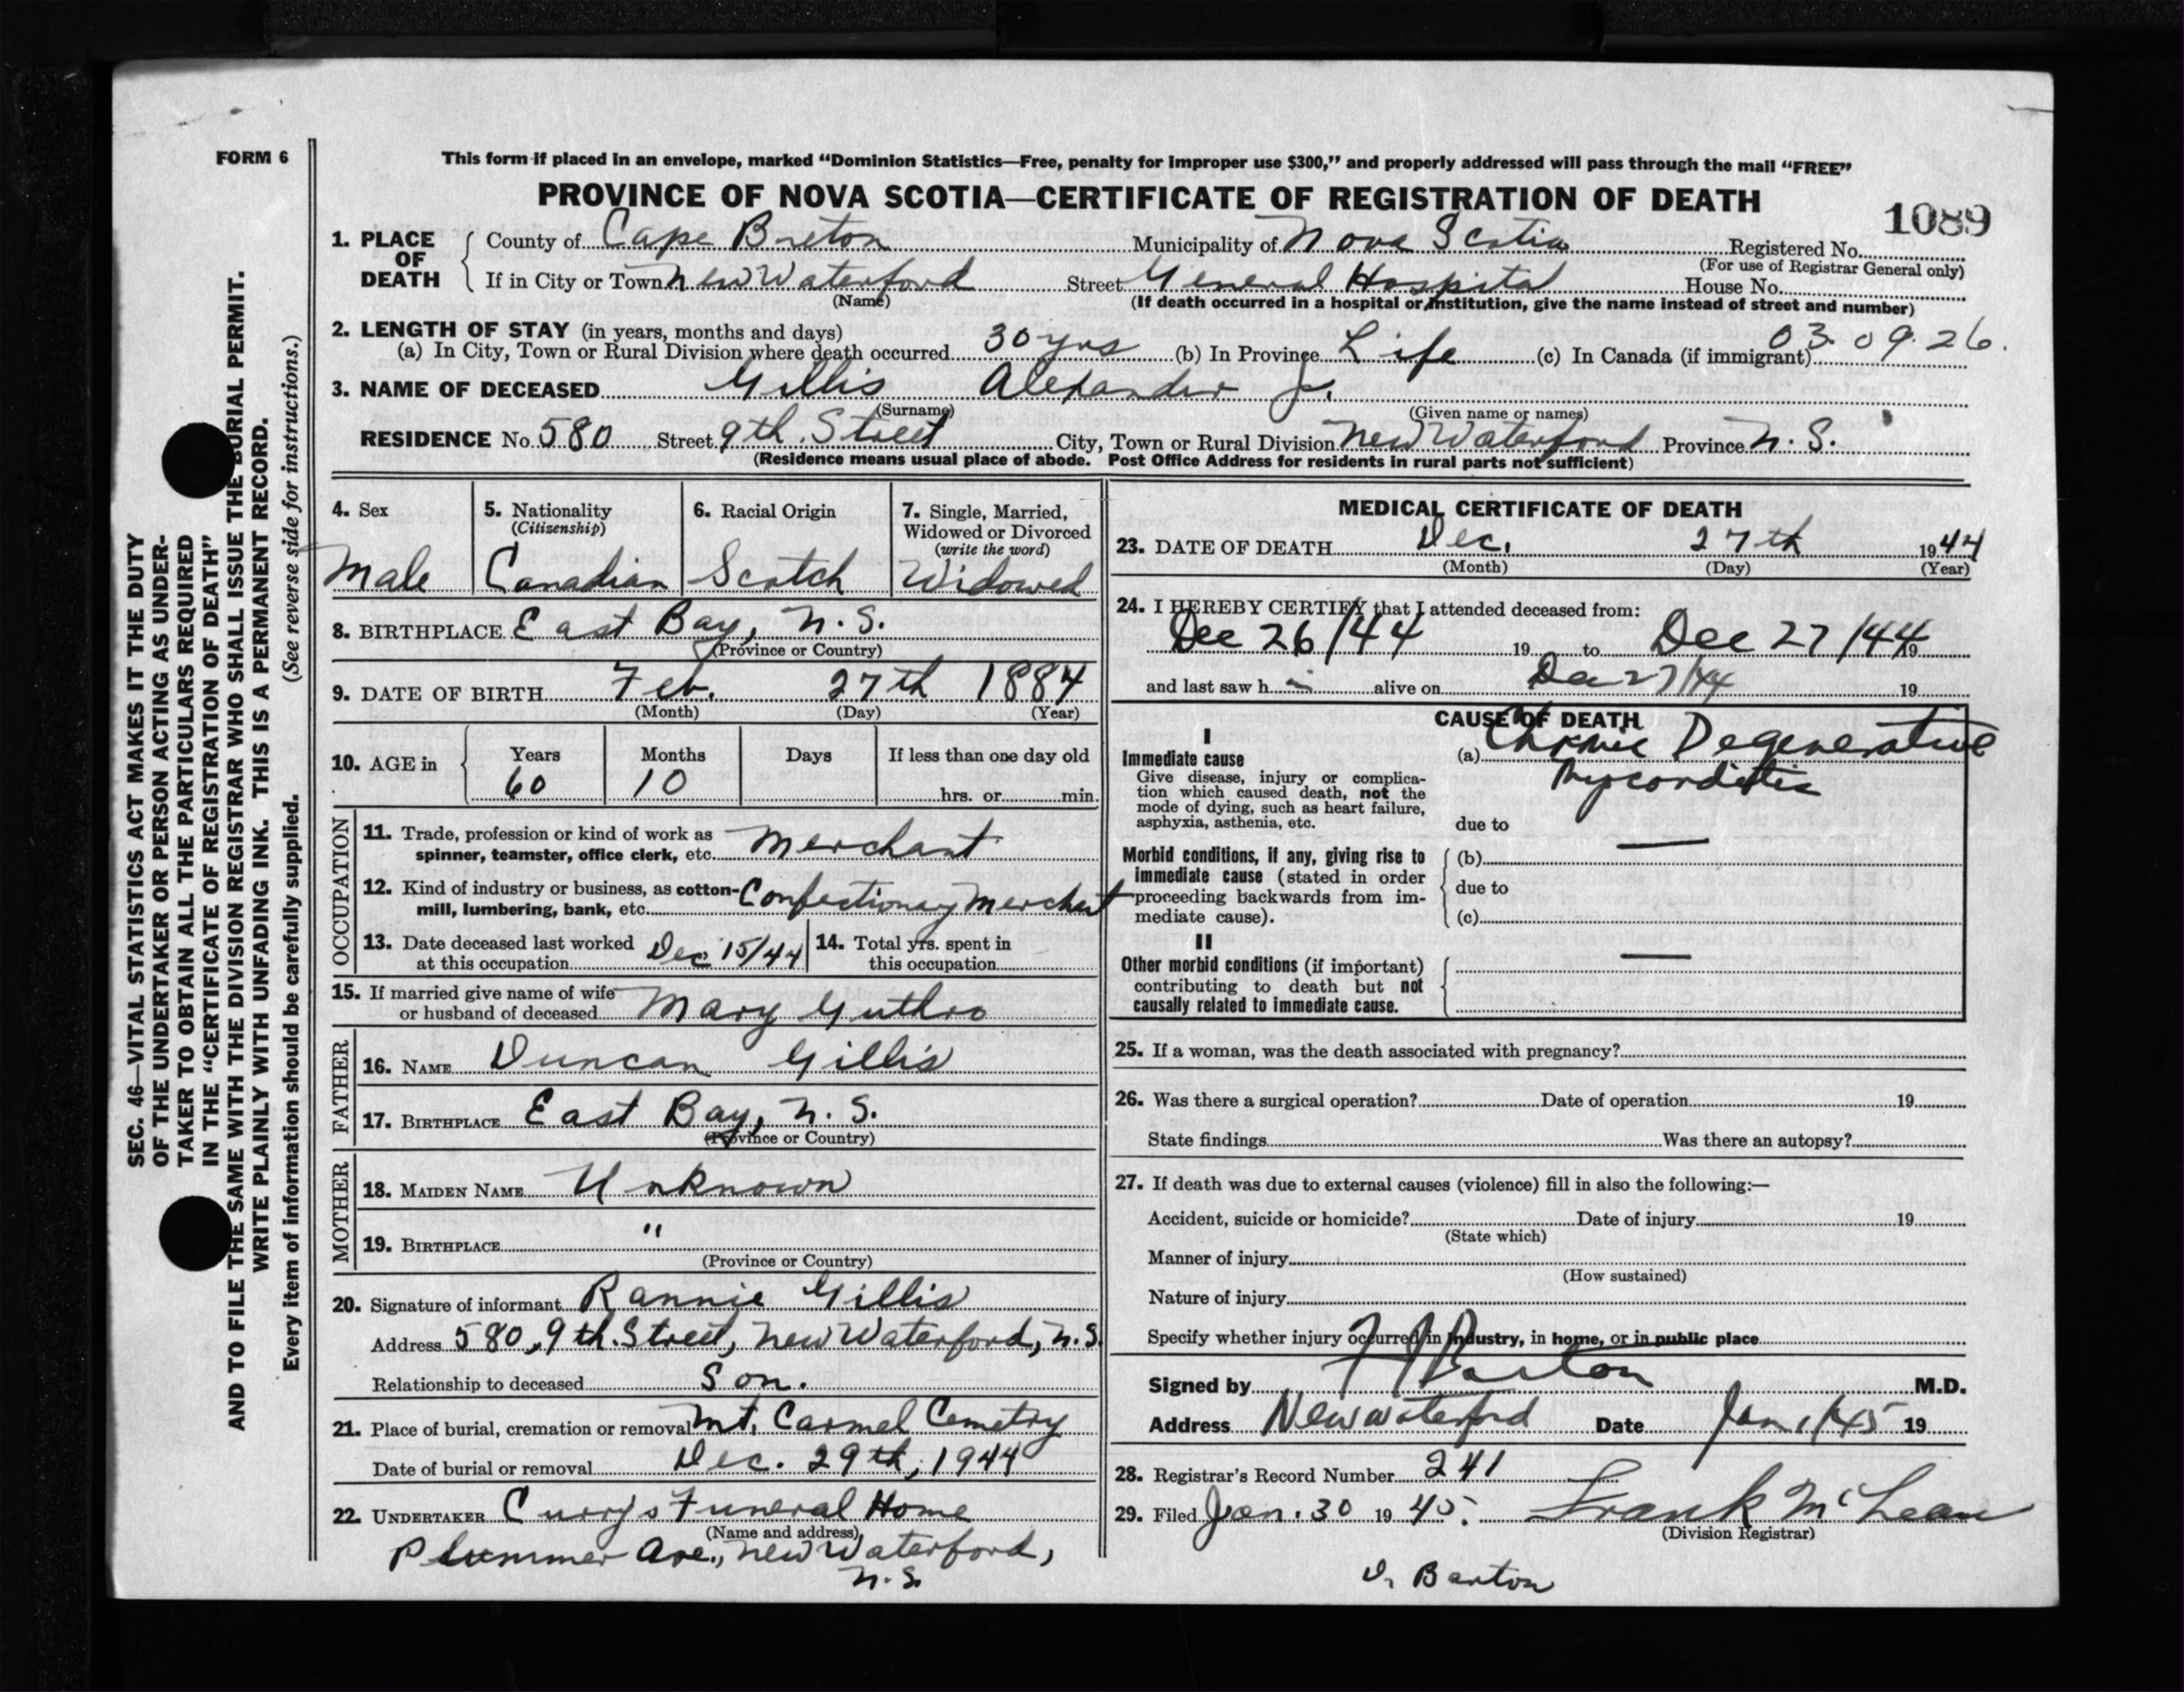 FORM 6
This form if placed in an envelope, marked "Dominion Statistics—Free, penalty for improper use $300," and properly addressed will pass through the mail "FREE"
PROVINCE OF NOVA SCOTIA—CERTIFICATE OF REGISTRATION OF DEATH
1089
1. PLACE OF DEATH
County of Cape Breton Municipality of Nova Scotia Registered No.
(For use of Registrar General only)
If in City or Town New Waterford Street General Hospital House No.
(Name) (If death occurred in a hospital or institution, give the name instead of street and number)
2. LENGTH OF STAY (in years, months and days)
(a) In City, Town or Rural Division where death occurred 30 yrs (b) In Province Life (c) In Canada (if immigrant) 03.09.26.
3. NAME OF DECEASED Gillis Alexander J.
(Surname) (Given name or names)
RESIDENCE No. 580 Street 9th. Street City, Town or Rural Division New Waterford Province N. S.
(Residence means usual place of abode. Post Office Address for residents in rural parts not sufficient)
4. Sex
Male
5. Nationality
(Citizenship)
Canadian
6. Racial Origin
Scotch
7. Single, Married,
Widowed or Divorced
(write the word)
Widowed
8. BIRTHPLACE East Bay, N. S.
(Province or Country)
9. DATE OF BIRTH Feb. 27th 1884
(Month) (Day) (Year)
10. AGE in
Years Months Days If less than one day old
60 10 hrs. or min.
OCCUPATION
11. Trade, profession or kind of work as
spinner, teamster, office clerk, etc. Merchant
12. Kind of industry or business, as cotton-
mill, lumbering, bank, etc. Confectionary Merchant
13. Date deceased last worked
at this occupation Dec 15/44
14. Total yrs. spent in
this occupation
15. If married give name of wife
or husband of deceased Mary Guthro
FATHER
16. NAME Duncan Gillis
17. BIRTHPLACE East Bay, N. S.
(Province or Country)
MOTHER
18. MAIDEN NAME Unknown
19. BIRTHPLACE "
(Province or Country)
20. Signature of informant Rannie Gillis
Address 580, 9th. Street, New Waterford, N. S.
Relationship to deceased Son.
21. Place of burial, cremation or removal Mt. Carmel Cemetry
Date of burial or removal Dec. 29th, 1944
22. UNDERTAKER Curry's Funeral Home
(Name and address)
Plummer Ave., New Waterford,
N. S.
MEDICAL CERTIFICATE OF DEATH
23. DATE OF DEATH Dec. 27th 1944
(Month) (Day) (Year)
24. I HEREBY CERTIFY that I attended deceased from:
Dec 26/44 19 to Dec 27/44 19
and last saw h im alive on Dec 27/44 19
CAUSE OF DEATH
I
Immediate cause
Give disease, injury or complica-
tion which caused death, not the
mode of dying, such as heart failure,
asphyxia, asthenia, etc.
(a) Chronic Degenerative
Myocorditis
due to
Morbid conditions, if any, giving rise to
immediate cause (stated in order
proceeding backwards from im-
mediate cause).
(b) —
due to
(c)
II
Other morbid conditions (if important)
contributing to death but not
causally related to immediate cause.
—
25. If a woman, was the death associated with pregnancy?
26. Was there a surgical operation? Date of operation 19
State findings Was there an autopsy?
27. If death was due to external causes (violence) fill in also the following:—
Accident, suicide or homicide? Date of injury 19
(State which)
Manner of injury
(How sustained)
Nature of injury
Specify whether injury occurred in industry, in home, or in public place
Signed by Barton M.D.
Address New Waterford Date Jan 1/45 19
28. Registrar's Record Number 241
29. Filed Jan. 30 19 45. Frank McLean
(Division Registrar)
D. Barton
SEC. 46—VITAL STATISTICS ACT MAKES IT THE DUTY
OF THE UNDERTAKER OR PERSON ACTING AS UNDER-
TAKER TO OBTAIN ALL THE PARTICULARS REQUIRED
IN THE "CERTIFICATE OF REGISTRATION OF DEATH"
AND TO FILE THE SAME WITH THE DIVISION REGISTRAR WHO SHALL ISSUE THE BURIAL PERMIT.
WRITE PLAINLY WITH UNFADING INK. THIS IS A PERMANENT RECORD.
Every item of information should be carefully supplied. (See reverse side for instructions.)